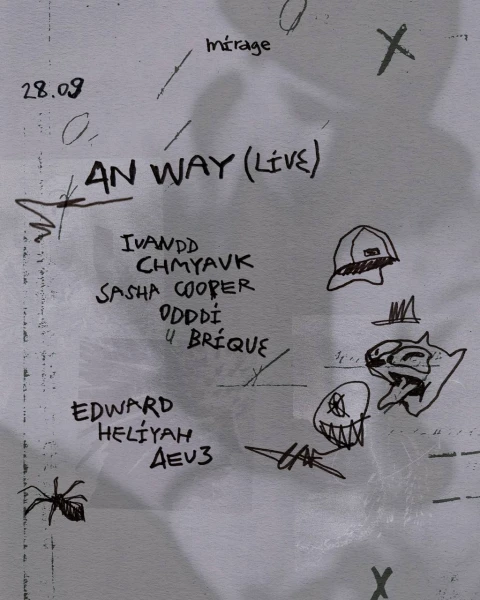 mirage
28.09
AN WAY (LIVE)
IVANDD
CHMYAVK
SASHA COOPER
ODDDI
u BRIQUE
EDWARD
HELIYAH